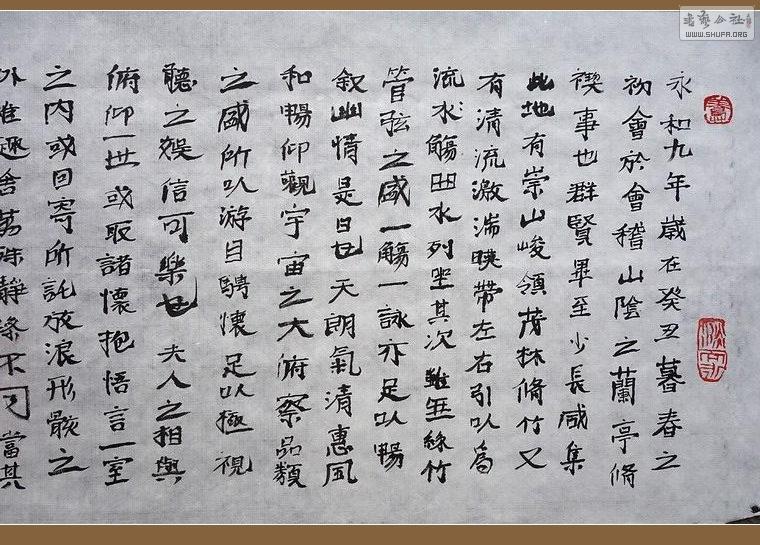 永和九年歳在癸丑暮春之
初會於會稽山陰之蘭亭脩
禊事也群賢畢至少長咸集
此地有崇山峻領茂林脩竹又
有清流激湍暎帶左右引以為
流水觴曲水列坐其次雖無絲竹
管弦之盛一觴一詠亦足以暢
叙幽情是日也天朗氣清惠風
和暢仰觀宇宙之大俯察品類
之盛所以游目騁懷足以極視
聽之娛信可樂也夫人之相與
俯仰一世或取諸懷抱悟言一室
之内或因寄所託放浪形骸之
外雖趣舍萬殊靜躁不同當其
書藝公社
WWW.SHUFA.ORG